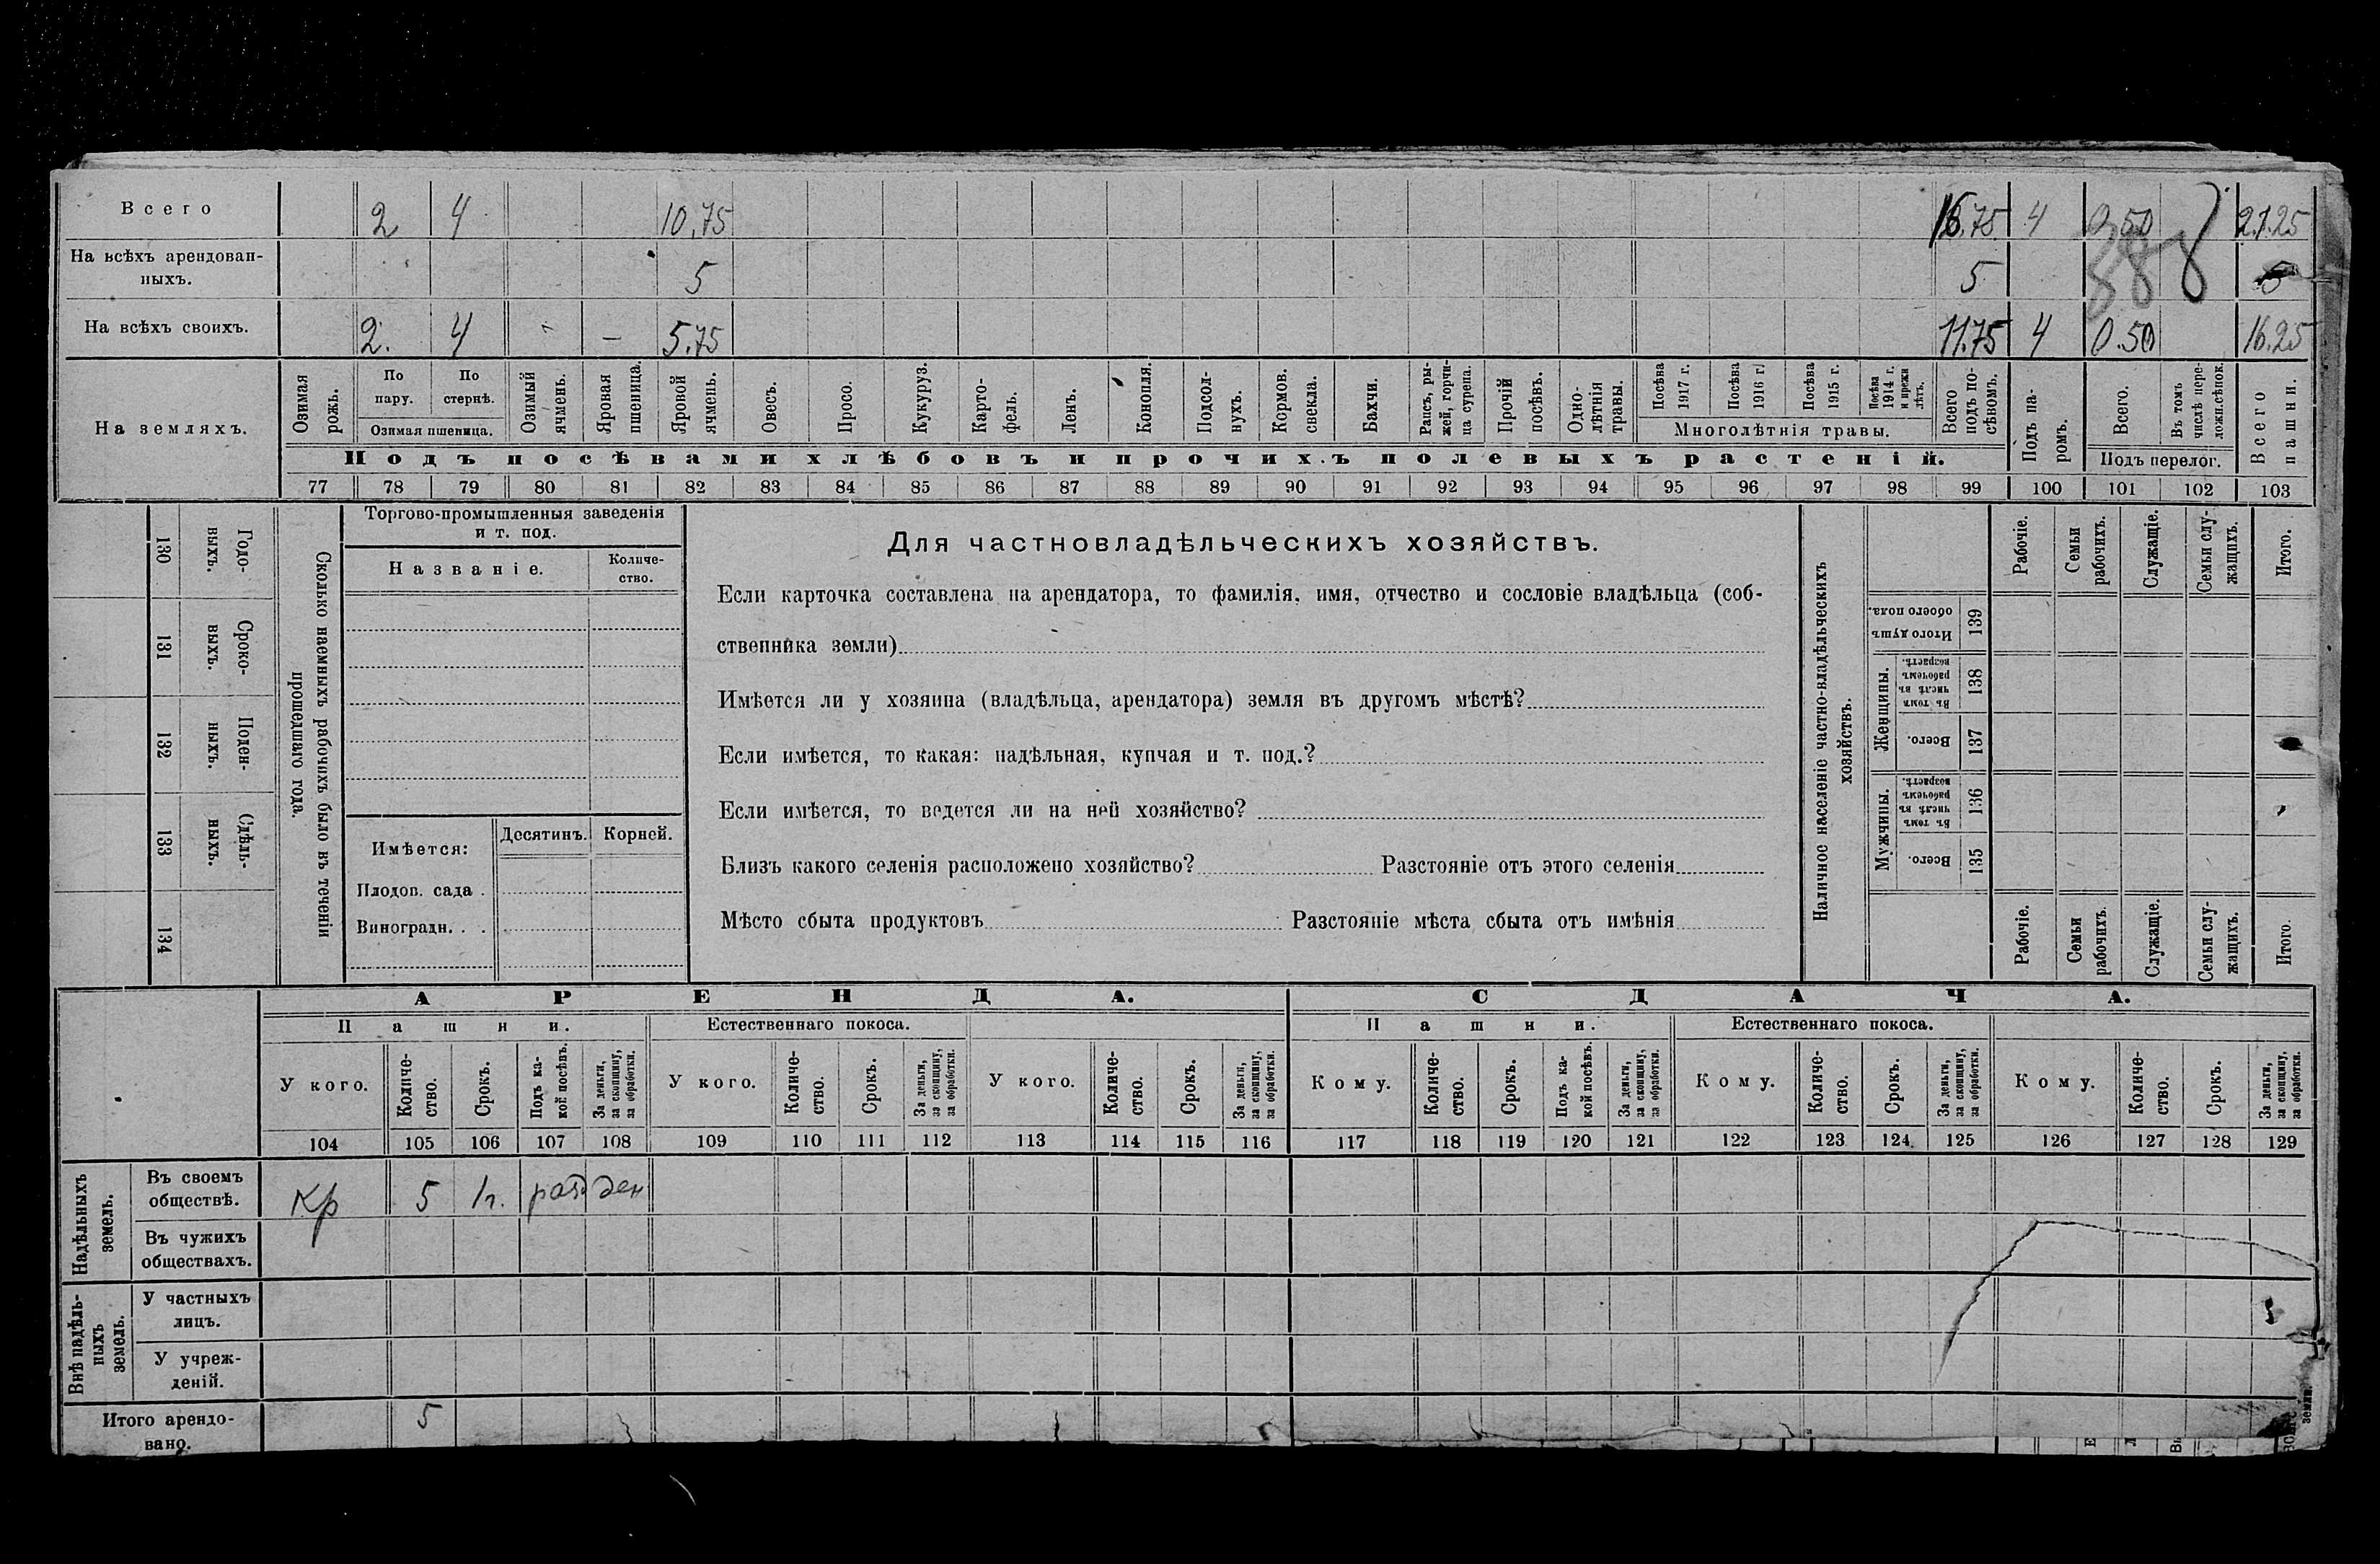 Всего 2 4 10.75 16.75 4 0.50 21.25
На всѣхъ арендован-
ныхъ. 5 5 5
На всѣхъ своихъ. 2. 4 - 5.75 11.75 4 0.50 16.25
888
На земляхъ.
Озимая рожь.
По пару.
По стернѣ.
Озимая пшеница.
Озимый ячмень.
Яровая пшеница.
Яровой ячмень.
Овесъ.
Просо.
Кукуруз.
Карто-
фель.
Ленъ.
Конопля.
Подсол-
нухъ.
Кормов. свекла.
Бахчи.
Рапсъ, ры-
жей, горчи-
ца сурепа.
Прочій посѣвъ.
Одно-
лѣтнія травы.
Посѣва 1917 г.
Посѣва 1916 г.
Посѣва 1915 г.
Посѣва 1914 г. и прежн лѣтъ.
Многолѣтнія травы.
Всего подъ по-
сѣвомъ.
Подъ па-
ромъ.
Всего.
Въ томъ числѣ пере-
ложн.сѣнок.
Подъ перелог.
Всего пашни.
Подъ посѣвами хлѣбовъ и прочихъ полевыхъ растеній.
77 78 79 80 81 82 83 84 85 86 87 88 89 90 91 92 93 94 95 96 97 98 99 100 101 102 103
Сколько наемныхъ рабочихъ было въ теченіи
прошедшаго года.
Годо-
выхъ.
130
Сроко-
выхъ.
131
Поден-
ныхъ.
132
Сдѣль-
ныхъ.
133
134
Торгово-промышленныя заведенія
и т. под.
Названіе.
Количе-
ство.
Имѣется: Десятинъ. Корней.
Плодов. сада .
Виноградн. . .
Для частновладѣльческихъ хозяйствъ.
Если карточка составлена на арендатора, то фамилія, имя, отчество и сословіе владѣльца (соб-
ственника земли)
Имѣется ли у хозяина (владѣльца, арендатора) земля въ другомъ мѣстѣ?
Если имѣется, то какая: надѣльная, купчая и т. под.?
Если имѣется, то ведется ли на ней хозяйство?
Близъ какого селенія расположено хозяйство? Разстояніе отъ этого селенія
Мѣсто сбыта продуктовъ Разстояніе мѣста сбыта отъ имѣнія
Наличное населеніе частно-владѣльческихъ
хозяйствъ.
Рабочіе.
Семьи рабочихъ.
Служащіе.
Семьи слу-
жащихъ.
Итого.
Итого душъ обоего пола.
139
Женщины.
Въ томъ числѣ въ рабочемъ возрастѣ.
138
Всего.
137
Мужчины.
Въ томъ числѣ въ рабочемъ возрастѣ.
136
Всего.
135
Рабочіе.
Семьи рабочихъ.
Служащіе.
Семьи слу-
жащихъ.
Итого.
АРЕНДА. СДАЧА.
Пашни. Естественнаго покоса. Пашни. Естественнаго покоса.
У кого.
Количе-
ство.
Срокъ.
Подъ ка-
кой посѣвъ.
За деньги, за скопщину, за обработки.
У кого.
Количе-
ство.
Срокъ.
За деньги, за скопщину, за обработки.
У кого.
Количе-
ство.
Срокъ.
За деньги, за скопщину, за обработки.
Кому.
Количе-
ство.
Срокъ.
Подъ ка-
кой посѣвъ.
За деньги, за скопщину, за обработки.
Кому.
Количе-
ство.
Срокъ.
За деньги, за скопщину, за обработки.
Кому.
Количе-
ство.
Срокъ.
За деньги, за скопщину, за обработки.
104 105 106 107 108 109 110 111 112 113 114 115 116 117 118 119 120 121 122 123 124. 125 126 127 128 129
Надѣльныхъ земель.
Въ своемъ
обществѣ. Кр 5 1г. ден
Въ чужихъ
обществахъ.
Внѣ надѣль-
ныхъ земель.
У частныхъ
лицъ.
У учреж-
деній.
Итого арендо-
вано. 5
земли.